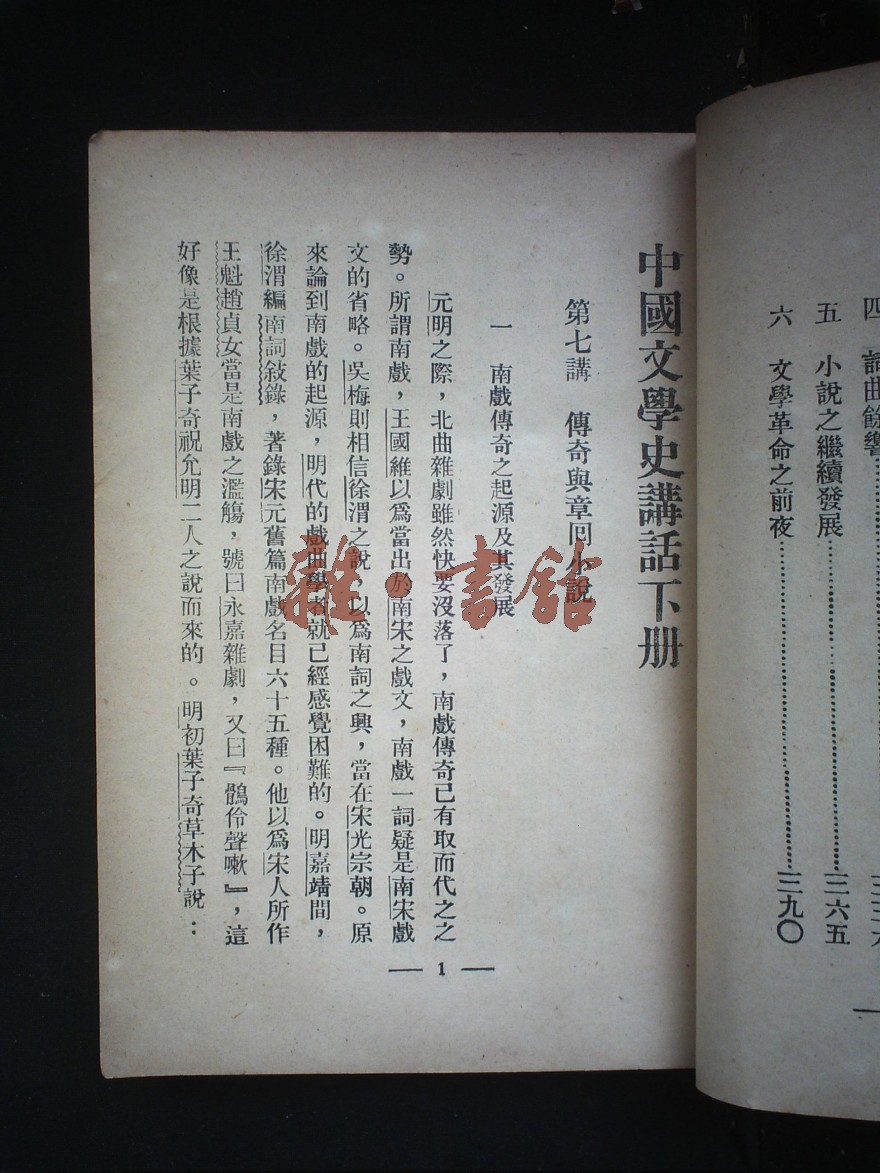 詞曲餘響
五　小說之繼續發展…………三六五
六　文學革命之前夜…………三九〇
中國文學史講話下册
第七講　傳奇與章回小說
一　南戲傳奇之起源及其發展
元明之際，北曲雜劇雖然快要沒落了，南戲傳奇已有取而代之之
勢。所謂南戲，王國維以爲當出於南宋之戲文，南戲一詞疑是南宋戲
文的省略。吳梅則相信徐渭之說　以爲南詞之興，當在宋光宗朝。原
來論到南戲的起源，明代的戲曲學者就已經感覺困難的。明嘉靖間，
徐渭編南詞敍錄，著錄宋元舊篇南戲名目六十五種。他以爲宋人所作
王魁趙貞女當是南戲之濫觴，號曰永嘉雜劇，又曰『鶻伶聲嗽』，這
好像是根據葉子奇祝允明二人之說而來的。明初葉子奇草木子說：
— 1 —
雜·書館